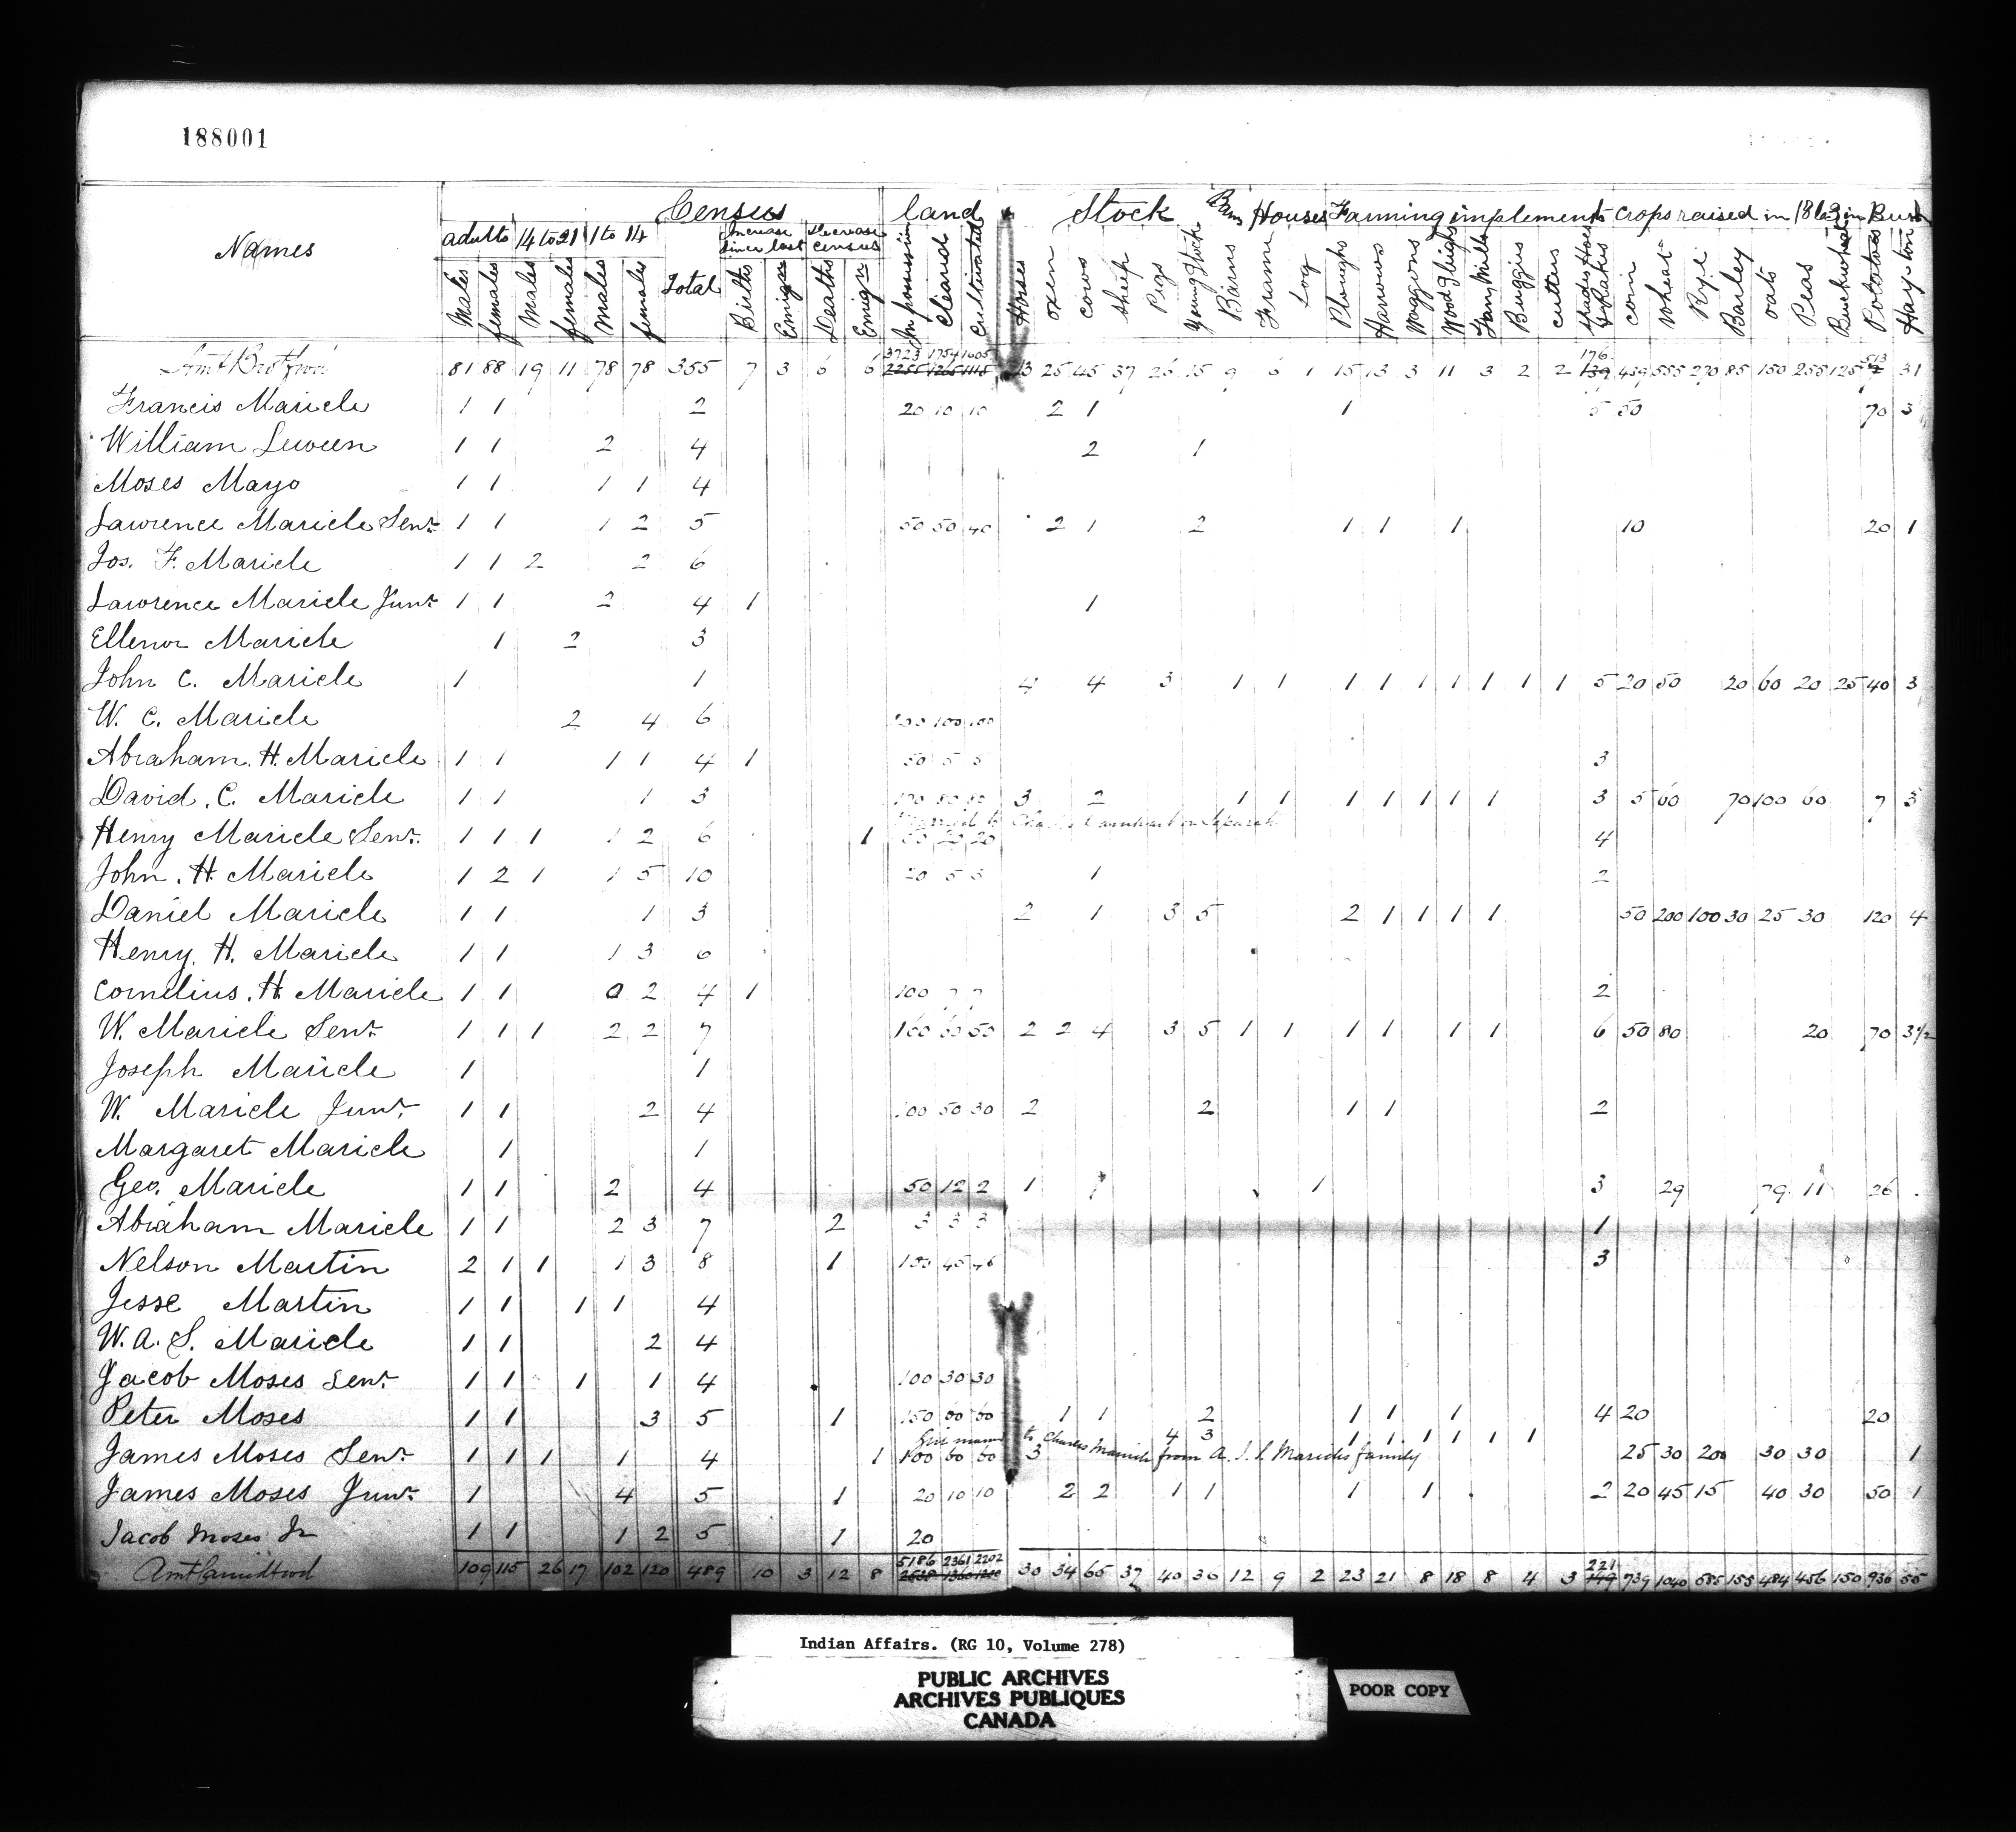 188001
Census land Stock Barns Houses Farming implements crops raised in 1863 in Bush
Names adults 14 to 21 1 to 14 Total Increase since last Decrease census
Males females Males females Males females Births Emigrn Deaths Emigrn In possession Cleared Cultivated Horses oxen cows Sheep Pigs Young Stock Barns Frame Log Ploughs Harrows Waggons Wood Slieghs Fan Mills Buggies cutters Spades Hoes & Rakes corn Wheat Rye Barley oats Peas Buckwheat Potatoes Hay ton
3723 1754 1605 176 513
Amt Brot fwd 81 88 19 11 78 78 355 7 3 6 6 2255 1265 1115 13 25 45 37 26 15 9 6 1 15 13 3 11 3 2 2 139 459 555 270 85 150 255 125 31
Francis Maricle 1 1 2 20 10 10 2 1 1 5 50 70 3
William 1 1 2 4 2 1
Moses Mayo 1 1 1 1 4
Lawrence Maricle Senr 1 1 1 2 5 50 50 40 2 1 2 1 1 1 10 20 1
Jos. F. Maricle 1 1 2 2 6
Lawrence Maricle Junr 1 1 2 4 1 1
Ellenor Maricle 1 2 3
John C. Maricle 1 1 4 4 3 1 1 1 1 1 1 1 1 1 5 20 50 20 60 20 25 40 3
W. C. Maricle 2 4 6 100 100
Abraham. H. Maricle 1 1 1 1 4 1 50 5 5 3
David. C. Maricle 1 1 1 3 80 80 3 2 1 1 1 1 1 1 1 3 5 60 70 100 60 7 3
Married to Separate
Henry Maricle Senr. 1 1 1 1 2 6 1 20 20 4
John. H. Maricle 1 2 1 1 5 10 20 5 5 1 2
Daniel Maricle 1 1 1 3 2 1 3 5 2 1 1 1 1 50 200 100 30 25 30 120 4
Henry. H. Maricle 1 1 1 3 6
Cornelius. H. Maricle 1 1 0 2 4 1 100 7 7 2
W. Maricle Senr 1 1 1 2 2 7 100 60 50 2 2 4 3 5 1 1 1 1 1 1 6 50 80 20 70 3½
Joseph Maricle 1 1
W. Maricle Junr. 1 1 2 4 100 50 30 2 2 1 1 2
Margaret Maricle 1 1
Geo. Maricle 1 1 2 4 50 12 2 1 1 1 3 29 79 11 26
Abraham Maricle 1 1 2 3 7 2 3 3 3 1
Nelson Martin 2 1 1 1 3 8 1 100 45 46 3
Jesse Martin 1 1 1 1 4
W. A. S. Maricle 1 1 2 4
Jacob Moses Senr 1 1 1 1 4 100 30 30
Peter Moses 1 1 3 5 1 150 60 60 1 1 2 1 1 1 4 20 20
Girl married to Charles Maricle from A. S. S. Maricles family
James Moses Senr 1 1 1 1 4 1 100 60 60 3 4 3 1 1 1 1 1 1 25 30 200 30 30 1
James Moses Junr. 1 4 5 1 20 10 10 2 2 1 1 1 1 2 20 45 15 40 30 50 1
Jacob Moses Jr 1 1 1 2 5 1 20
5186 2361 2202 221
Amt Carrid fwd 109 115 26 17 102 120 489 10 3 12 8 2638 1360 30 34 65 37 40 36 12 9 2 23 21 8 18 8 4 3 149 739 1040 585 155 484 456 150 936 55
Indian Affairs. (RG 10, Volume 278)
PUBLIC ARCHIVES
ARCHIVES PUBLIQUES
CANADA
POOR COPY